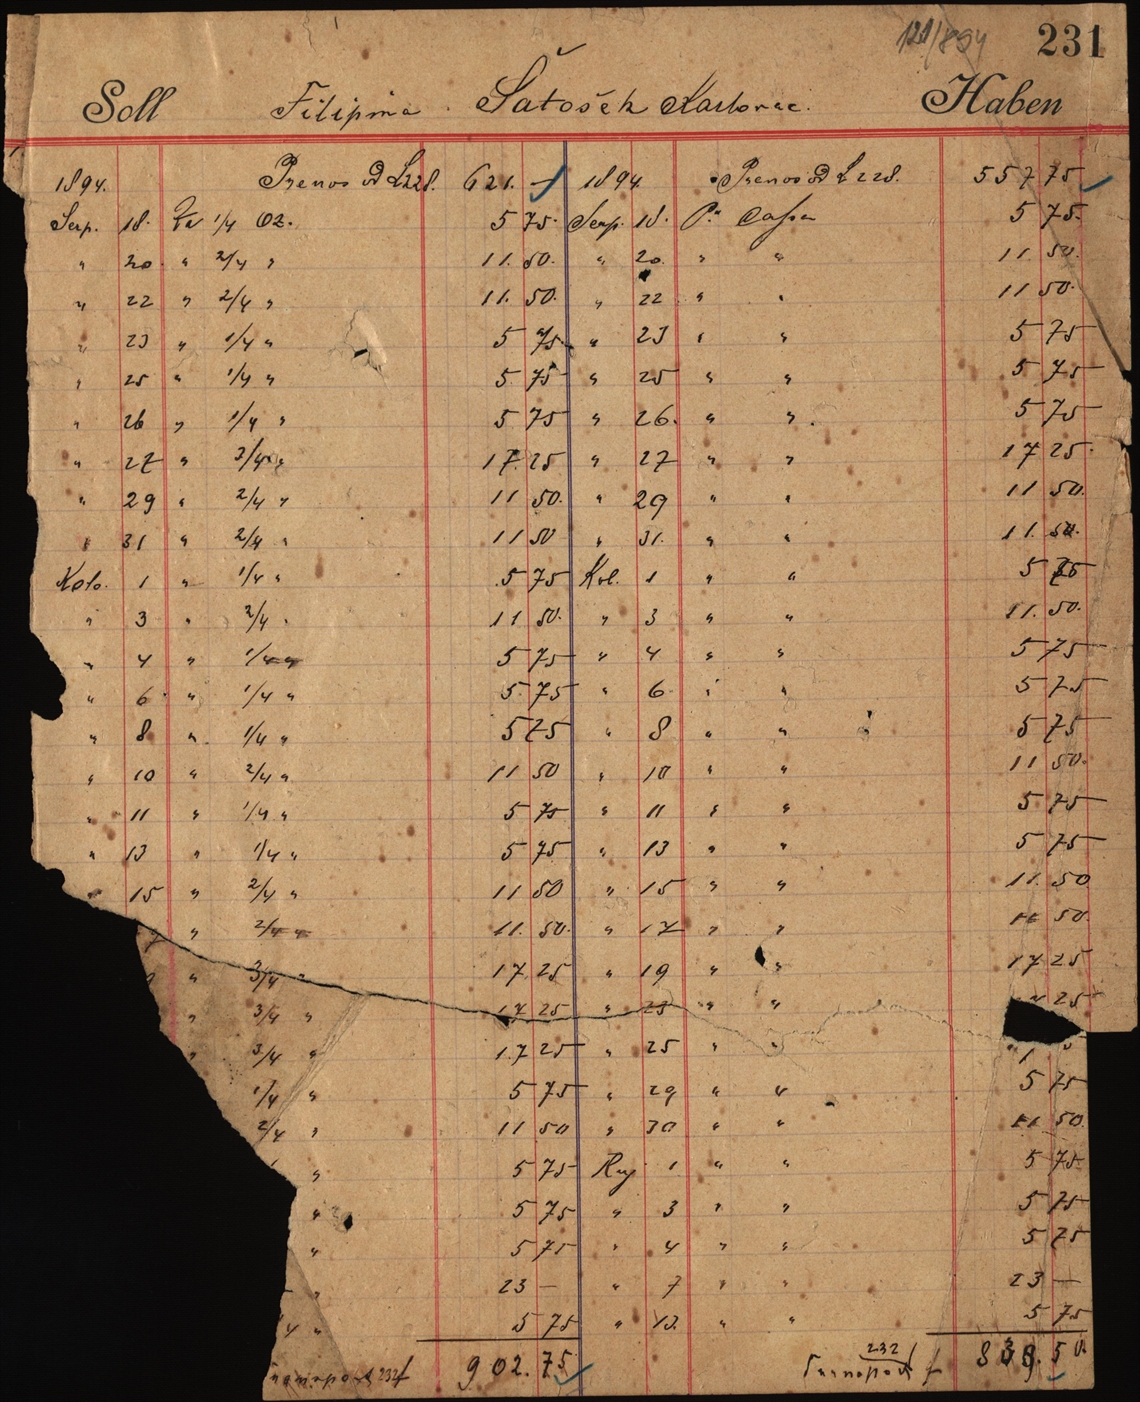 121/894 231
Soll Filipina Šatošek Karlovac. Haben
1894. Prenos od L228. 621. — 1894 Prenos od L 228. 557 75
Serp. 18. Za 1/4 Oz. 5 75. Serp. 18. Pr Cassa 5 75.
" 20. " 2/4 " 11. 50. " 20. " " 11 50.
" 22 " 2/4 " 11. 50. " 22 " " 11 50.
" 23 " 1/4 " 5 75. " 23 " " 5 75
" 25 " 1/4 " 5 75 " 25 " " 5 75
" 26 " 1/4 " 5 75 " 26. " " 5 75
" 27 " 3/4 " 17. 25 " 27 " " 17 25.
" 29 " 2/4 " 11 50. " 29 " " 11 50.
" 31 " 2/4 " 11 50 " 31. " " 11. 50.
Kolo. 1 " 1/4 " 5 75 Kol. 1 " " 5 75
" 3 " 2/4 " 11 50. " 3 " " 11. 50.
" 4 " 1/4 " 5 75 " 4 " " 5 75
" 6 " 1/4 " 5. 75 " 6 " " 5 75
" 8 " 1/4 " 5 75 " 8 " " 5 75
" 10 " 2/4 " 11 50 " 10 " " 11 50.
" 11 " 1/4 " 5 75 " 11 " " 5 75
" 13 " 1/4 " 5 75 " 13 " " 5 75
" 15 " 2/4 " 11 50 " 15 " " 11. 50
7 " 2/4 " 11. 50. " 17 " " 11 50.
9 " 3/4 " 17 25 " 19 " " 17 25
" 3/4 " 17 25 " 23 " " 25
" 3/4 " 17 25 " 25 " "
1/4 " 5 75 " 29 " " 5 75
2/4 " 11 50 " 30 " " 11 50.
" 5 75 Ruj 1 " " 5 75.
" 5 75 " 3 " " 5 75
" 5 75 " 4 " " 5 75
" 23 — " 7 " " 23 —
4 " 5 75 " 13. " " 5 75
Transport 232 f 902. 75 Transport 232 f 839. 50.